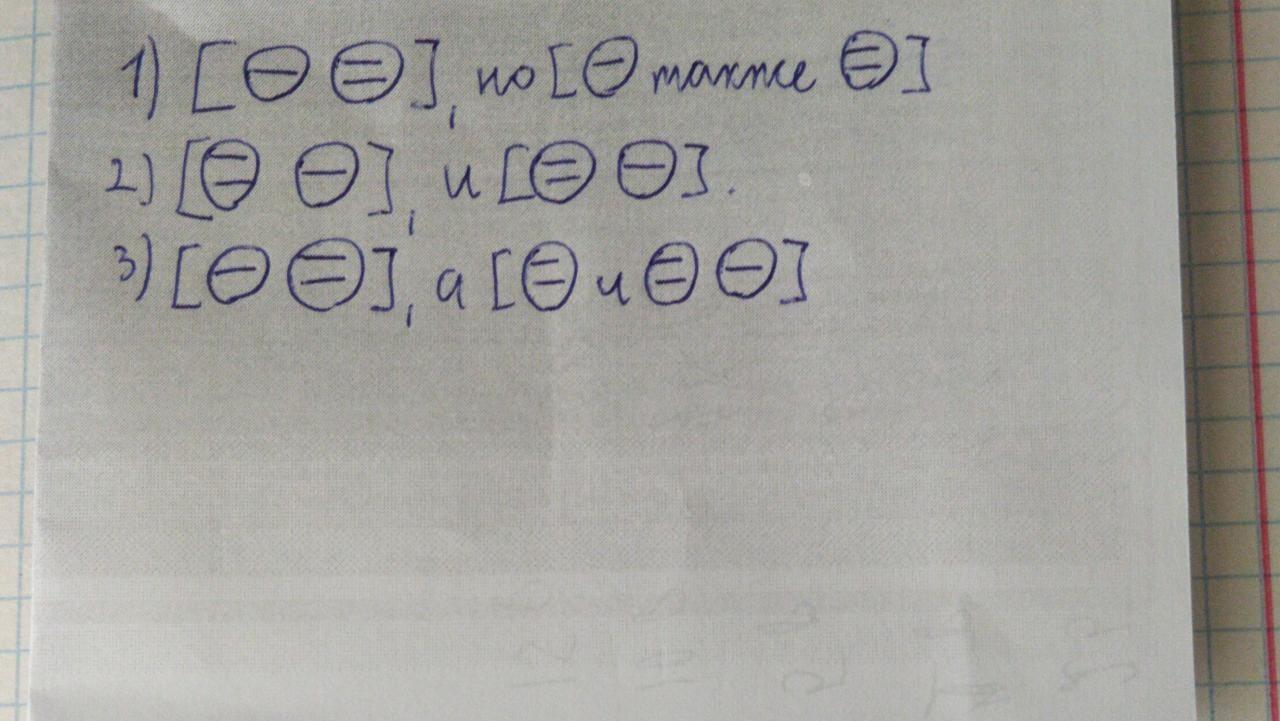 1) [⊖ ⊜], но [⊖ также ⊜]
2) [⊜ ⊖], и [⊜ ⊖].
3) [⊖ ⊜], а [⊜ и ⊜ ⊖]